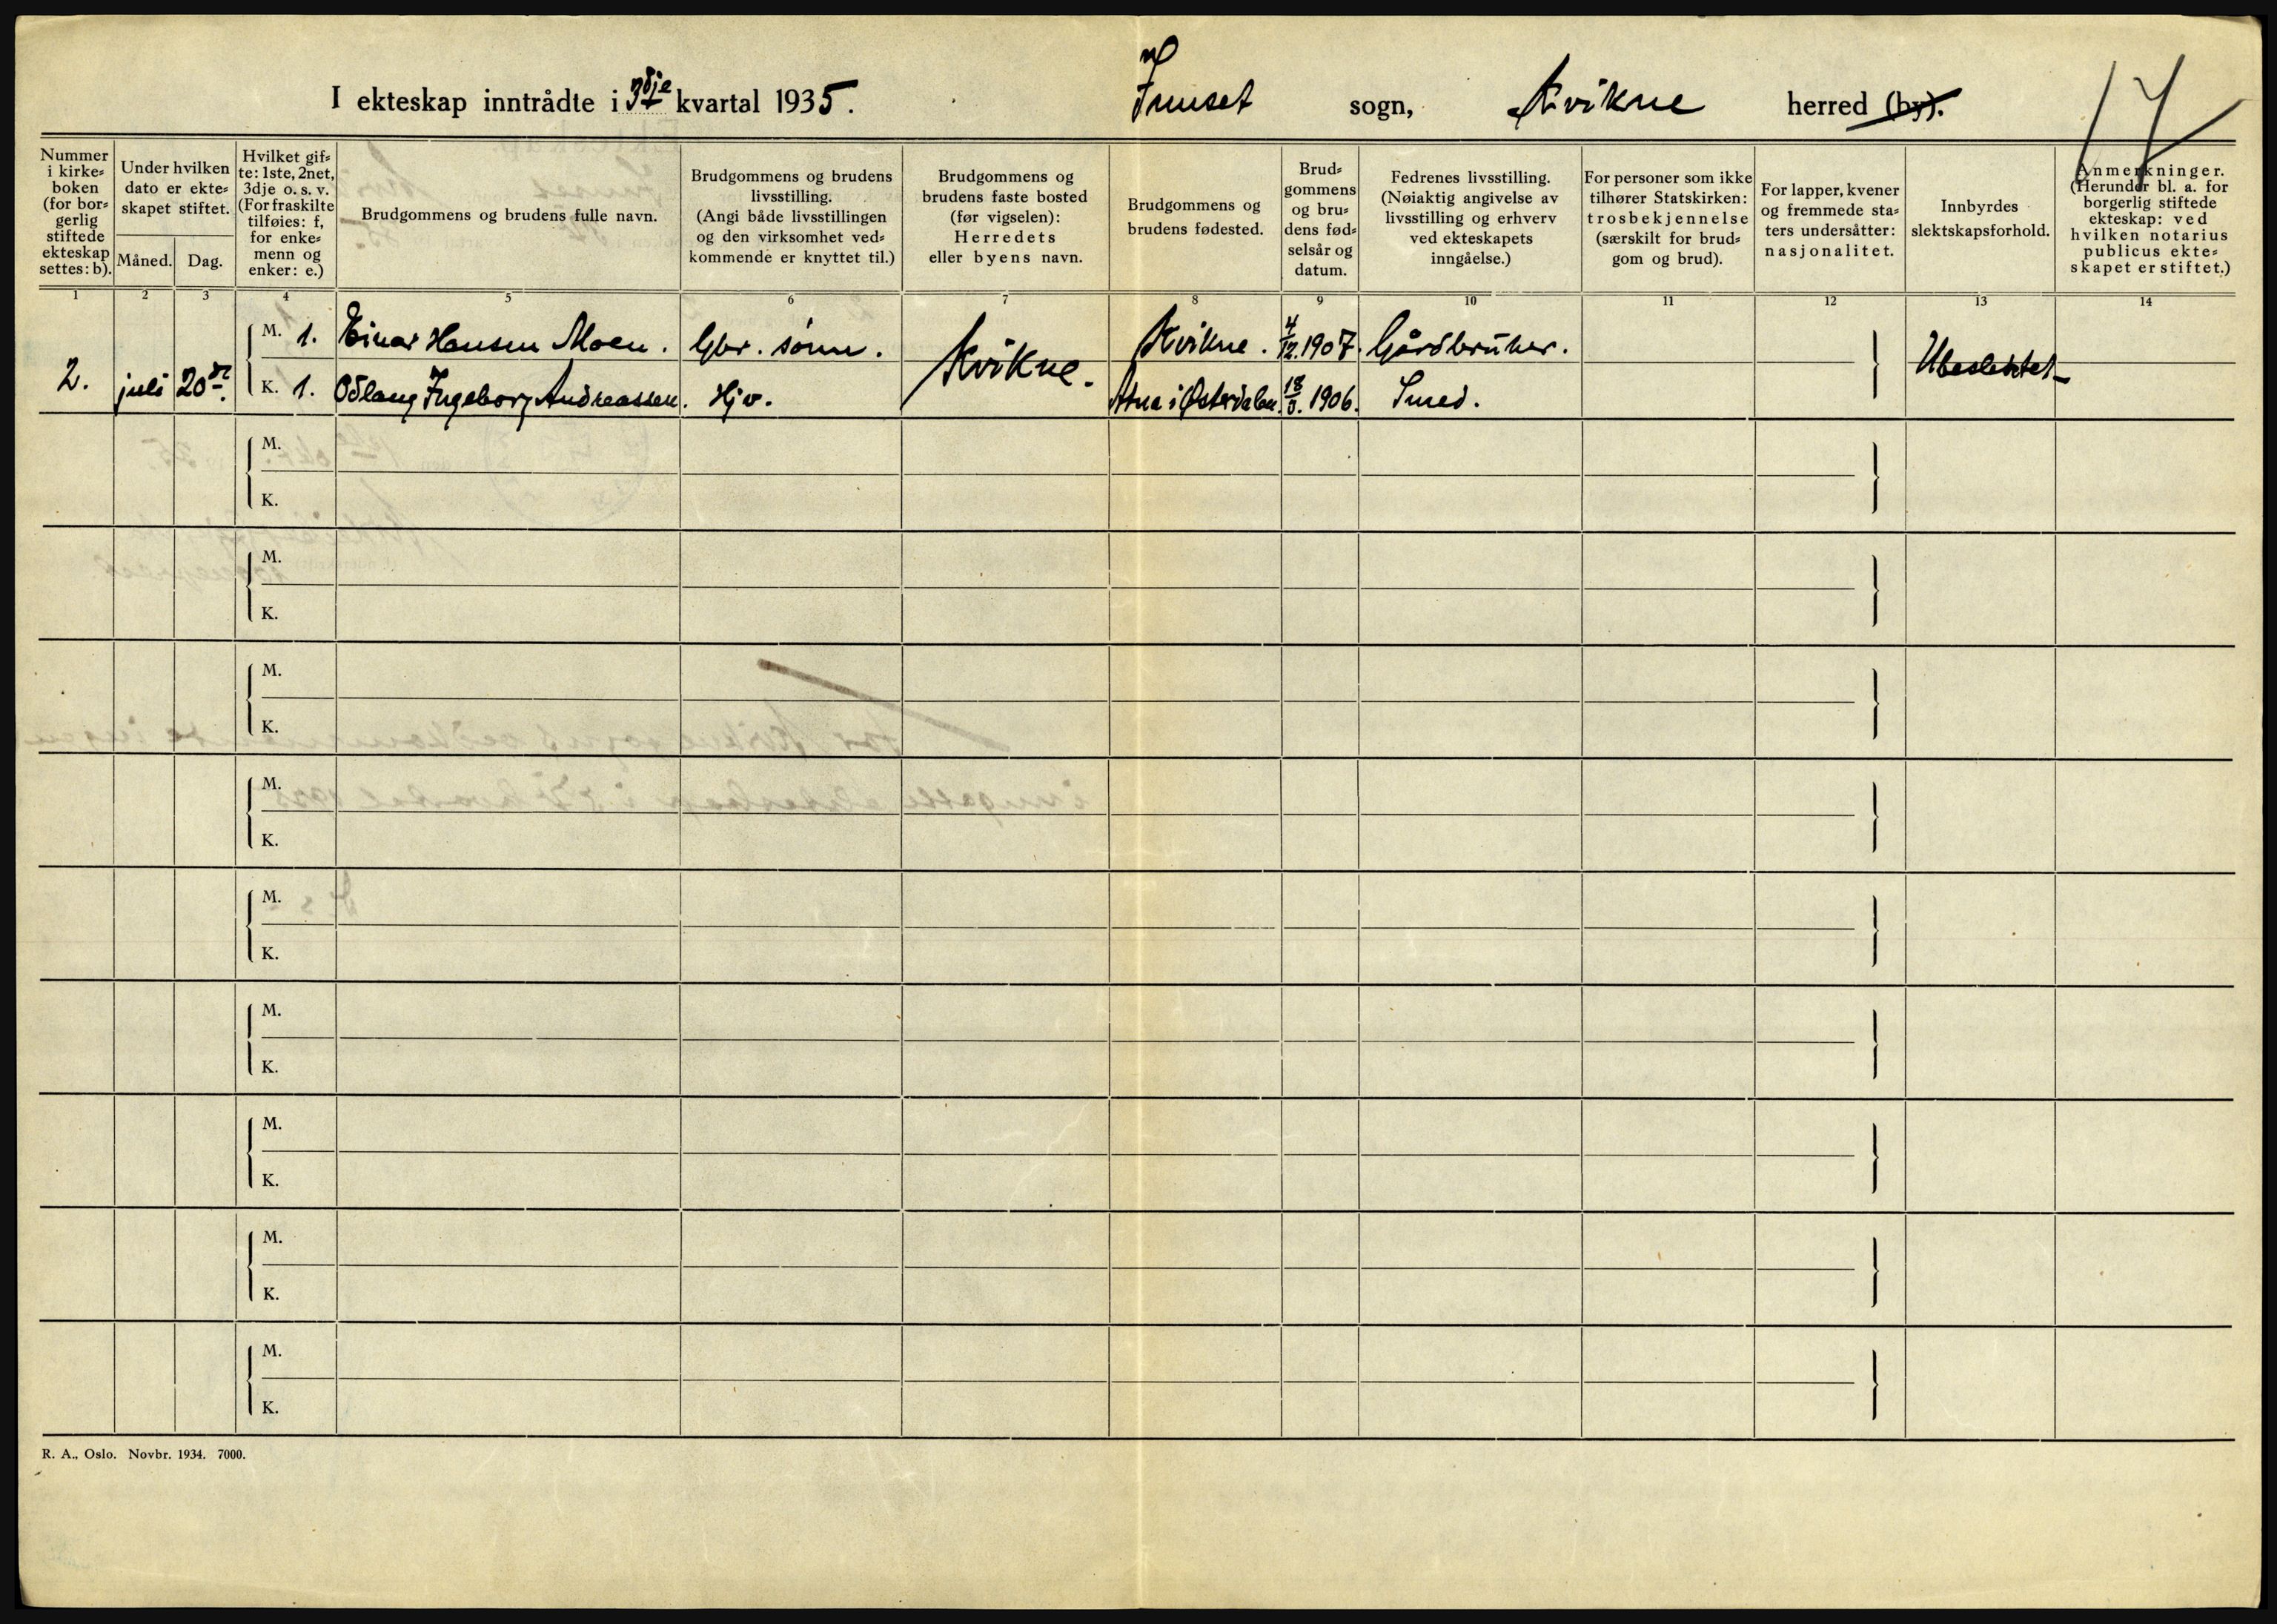 I ekteskap inntrådte i 3dje kvartal 1935. Innset sogn, Kvikne herred (by).
17
Nummer i kirke= boken (for bor= gerlig stiftede ekteskap settes: b).
Under hvilken dato er ekte= skapet stiftet.
Måned. Dag.
Hvilket gif= te: 1ste, 2net, 3dje o. s. v. (For fraskilte tilføies: f, for enke= menn og enker: e.)
Brudgommens og brudens fulle navn.
Brudgommens og brudens livsstilling. (Angi både livsstillingen og den virksomhet ved= kommende er knyttet til.)
Brudgommens og brudens faste bosted (før vigselen): Herredets eller byens navn.
Brudgommens og brudens fødested.
Brud= gommens og bru= dens fød= selsår og datum.
Fedrenes livsstilling. (Nøiaktig angivelse av livsstilling og erhverv ved ekteskapets inngåelse.)
For personer som ikke tilhører Statskirken: trosbekjennelse (særskilt for brud= gom og brud).
For lapper, kvener og fremmede sta= ters undersåtter: nasjonalitet.
Innbyrdes slektskapsforhold.
Anmerkninger. (Herunder bl. a. for borgerlig stiftede ekteskap: ved hvilken notarius publicus ekte= skapet er stiftet.)
1 2 3 4 5 6 7 8 9 10 11 12 13 14
M. 1. Einar Hansen Moen. Gbr. sønn. Kvikne. 4/12. 1907. Gårdbruker.
2. juli 20de Kvikne. Ubeslektet
K. 1. Odlaug Ingeborg Andreassen. Hjv. Atna i Østerdalen. 18/5. 1906. Smed.
M.
K.
M.
K.
M.
K.
M.
K.
M.
K.
M.
K.
M.
K.
M.
K.
M.
K.
R. A., Oslo. Novbr. 1934. 7000.